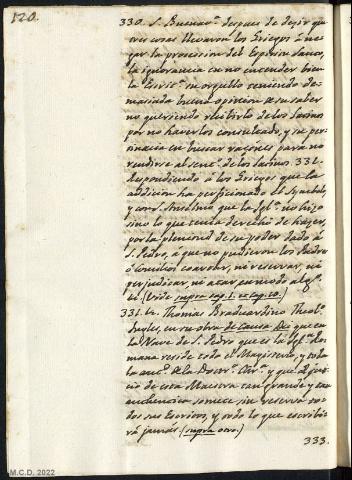 120.
330. S. Buenav.ª despues de dezir que
tres cosas llevaron los Griegos à ne-
gar la procesion del Espiritu Santo,
la ignorancia en no entender bien
la Escrit.ª su orgullo teniendo de-
masiada buena opinion de su saber
no queriendo recibirlo de los latinos
por no haverlos consultado, y su per-
tinacia en buscar razones para no
rendirse al sent.º de los latinos. 331.
Respondiendo à los Griegos que la
addicion ha perficionado el Symbolo,
y con S. Anselmo que la Igl.ª no hizo
sino lo que tenia derecho de hazer,
por la plenitud de su poder dado à
S. Pedro, a que no pudieron los Padres
ò Concilios coartar, ni reservar, ni
perjudicar, ni atar en modo alg.º
(Vide supra cap. 1. et cap. 10.)
331. Thomas Braduardino Theol.º
Ingles, en su obra de Causa Dei que en
la Nave de S. Pedro que es la Igl.ª Ro-
mana reside todo el Magisterio, y toda
la aut.
de esta Maestra tan grande y tan
authentica somete sin reserva to-
dos sus Escritos, y todo lo que escribi-
rá jamás. (supra
333.
M.C.D. 2022